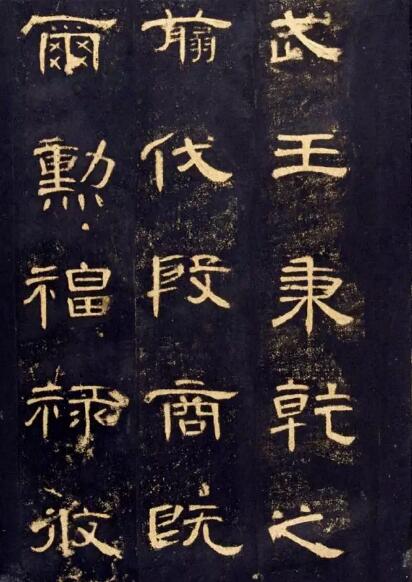 武王秉乾之
翦伐殷商既
爾勳福祿攸